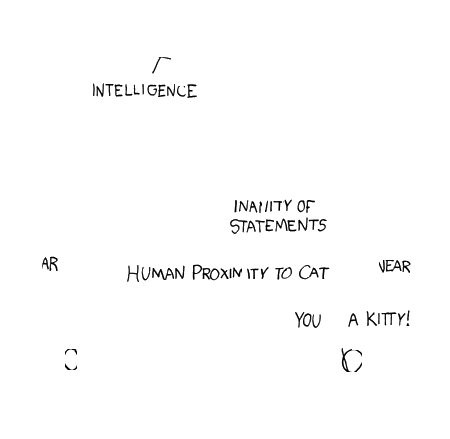 INTELLIGENCE
INANITY OF
STATEMENTS
AR
HUMAN PROXIMITY TO CAT
YOU A KITTY!